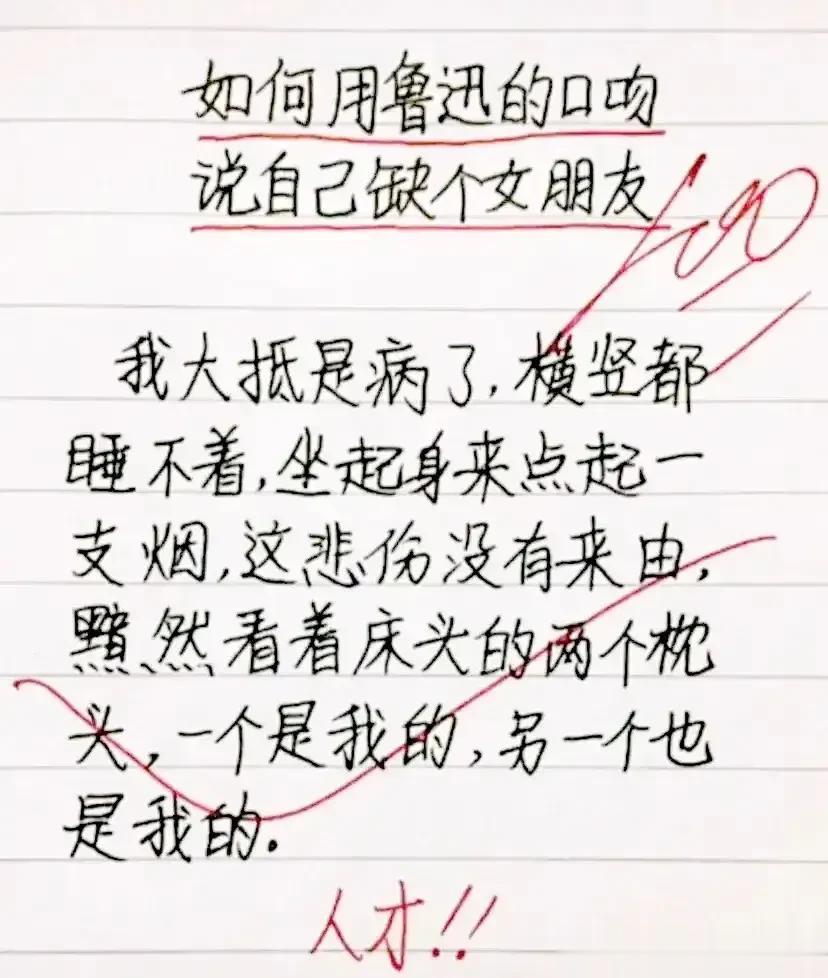 如何用鲁迅的口吻
说自己缺个女朋友
100
我大抵是病了,横竖都
睡不着,坐起身来点起一
支烟,这悲伤没有来由,
黯然看着床头的两个枕
头,一个是我的,另一个也
是我的.
人才!!